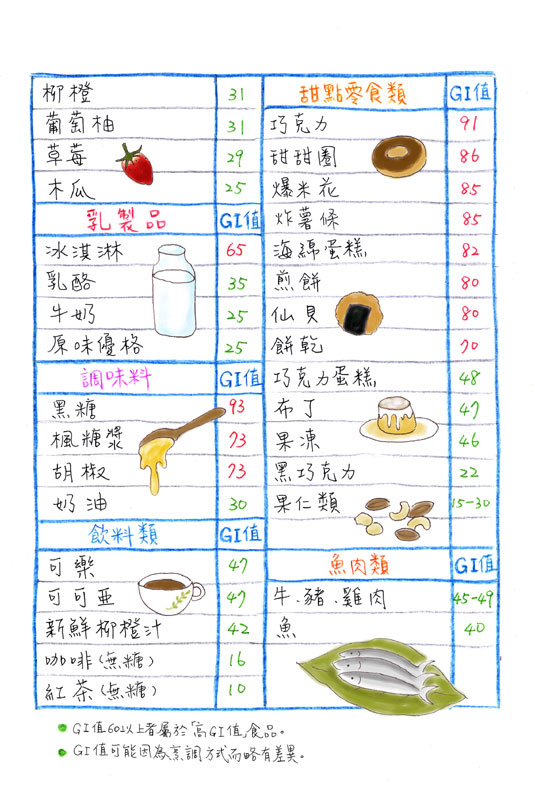 柳橙 31
葡萄柚 31
草莓 29
木瓜 25
乳製品 GI值
冰淇淋 65
乳酪 35
牛奶 25
原味優格 25
調味料 GI值
黑糖 93
楓糖漿 73
胡椒 73
奶油 30
飲料類 GI值
可樂 47
可可亞 47
新鮮柳橙汁 42
咖啡(無糖) 16
紅茶(無糖) 10
甜點零食類 GI值
巧克力 91
甜甜圈 86
爆米花 85
炸薯條 85
海綿蛋糕 82
煎餅 80
仙貝 80
餅乾 70
巧克力蛋糕 48
布丁 47
果凍 46
黑巧克力 22
果仁類 15-30
魚肉類 GI值
牛.豬.雞肉 45-49
魚 40
GI值60以上者屬於「高GI值」食品。
GI值可能因為烹調方式而略有差異。